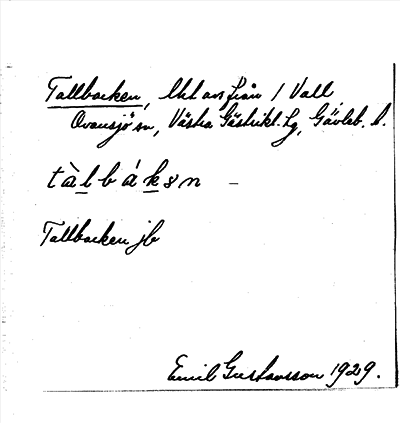 Tallbacken, lht avs från 1 Vall,
Ovansjö sn, Västra Gästrikl. tg, Gävleb. l.
tàlbákən –
Tallbacken jb
Emil Gustavsson 1929.